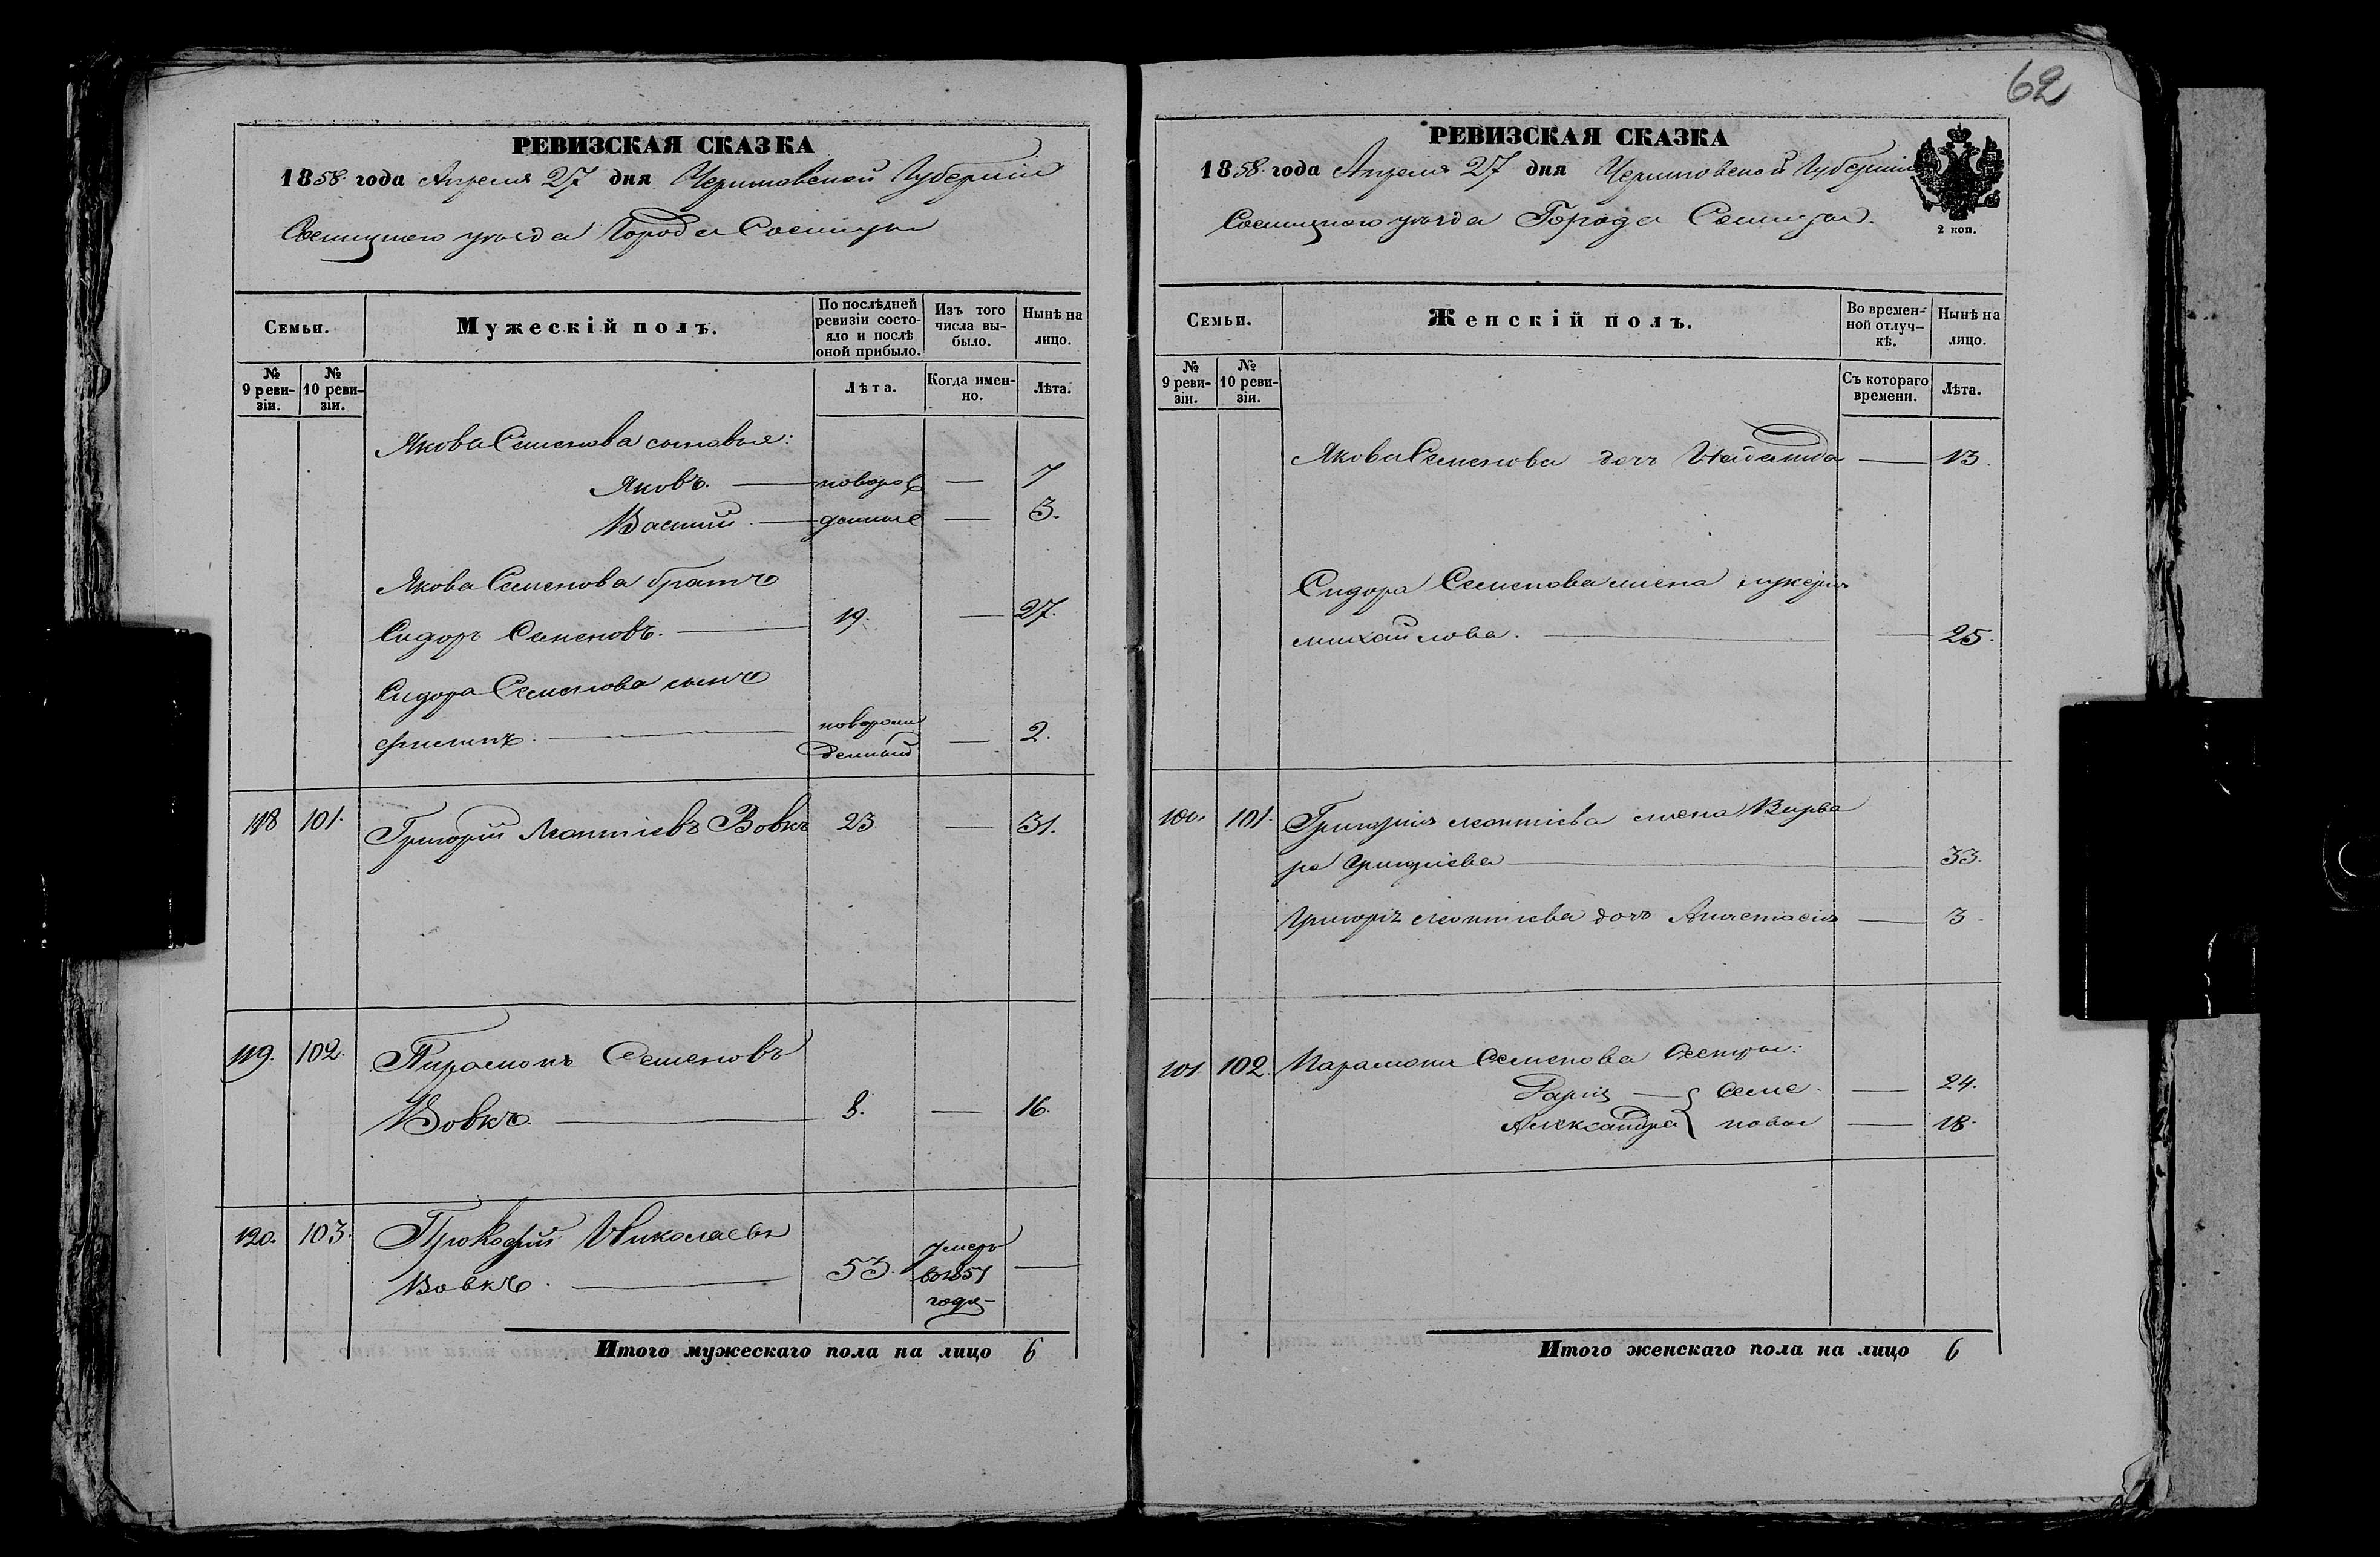 62
РЕВИЗСКАЯ СКАЗКА
1858 года Апреля 27 дня Черниговской Губернии
Сосницкого уезда Города Сосницы
Семьи.
Мужескій полъ.
По послѣдней ревизіи состояло и послѣ оной прибыло.
Изъ того числа выбыло.
Нынѣ на лицо.
№ 9 ревизіи.
№ 10 ревизіи.
Лѣта.
Когда именно.
Лѣта.
Якова Семенова сыновья:
Яковъ. — новорож — 7
Василий. — денные — 3.
Якова Семенова братъ
Сидоръ Семеновъ. — 19. — 27.
Сидора Семенова сынъ
Филипъ. — новорожденный — 2.
118 101. Григорий Леонтиевъ Вовкъ 23 — 31.
119. 102. Парамонъ Семеновъ
Вовкъ. — 8. — 16.
120. 103. Прокофий Николаевъ
Вовкъ. — 53. умеръ в 1851 годе —
Итого мужескаго пола на лицо 6
РЕВИЗСКАЯ СКАЗКА
1858 года Апреля 27 дня Черниговской Губернии
Сосницкого уезда Города Сосницы.
2 коп.
Семьи.
Женскій полъ.
Во временной отлучкѣ.
Нынѣ на лицо.
№ 9 ревизіи.
№ 10 ревизіи.
Съ котораго времени.
Лѣта.
Якова Семенова дочь — 13.
Сидора Семенова жена Лукерия
Михайлова. — 25.
100. 101. Григория Леонтиева жена Варва
ра — 33.
Григория Леонтиева дочь Анастасия — 3.
101 102. Парамона Семенова сестры:
Дария — { Семе — 24.
Александра { новы — 18.
Итого женскаго пола на лицо 6